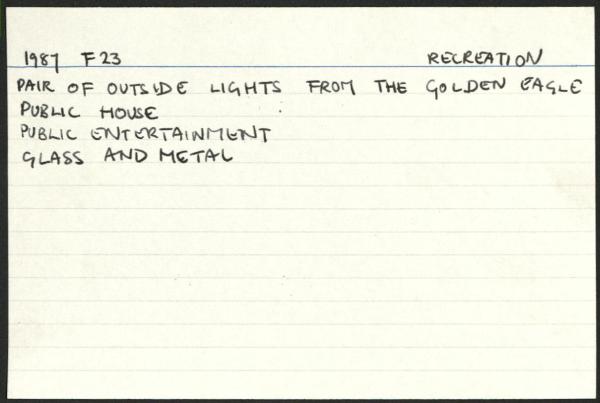 1987 F23 RECREATION
PAIR OF OUTSIDE LIGHTS FROM THE GOLDEN EAGLE
PUBLIC HOUSE
PUBLIC ENTERTAINMENT
GLASS AND METAL